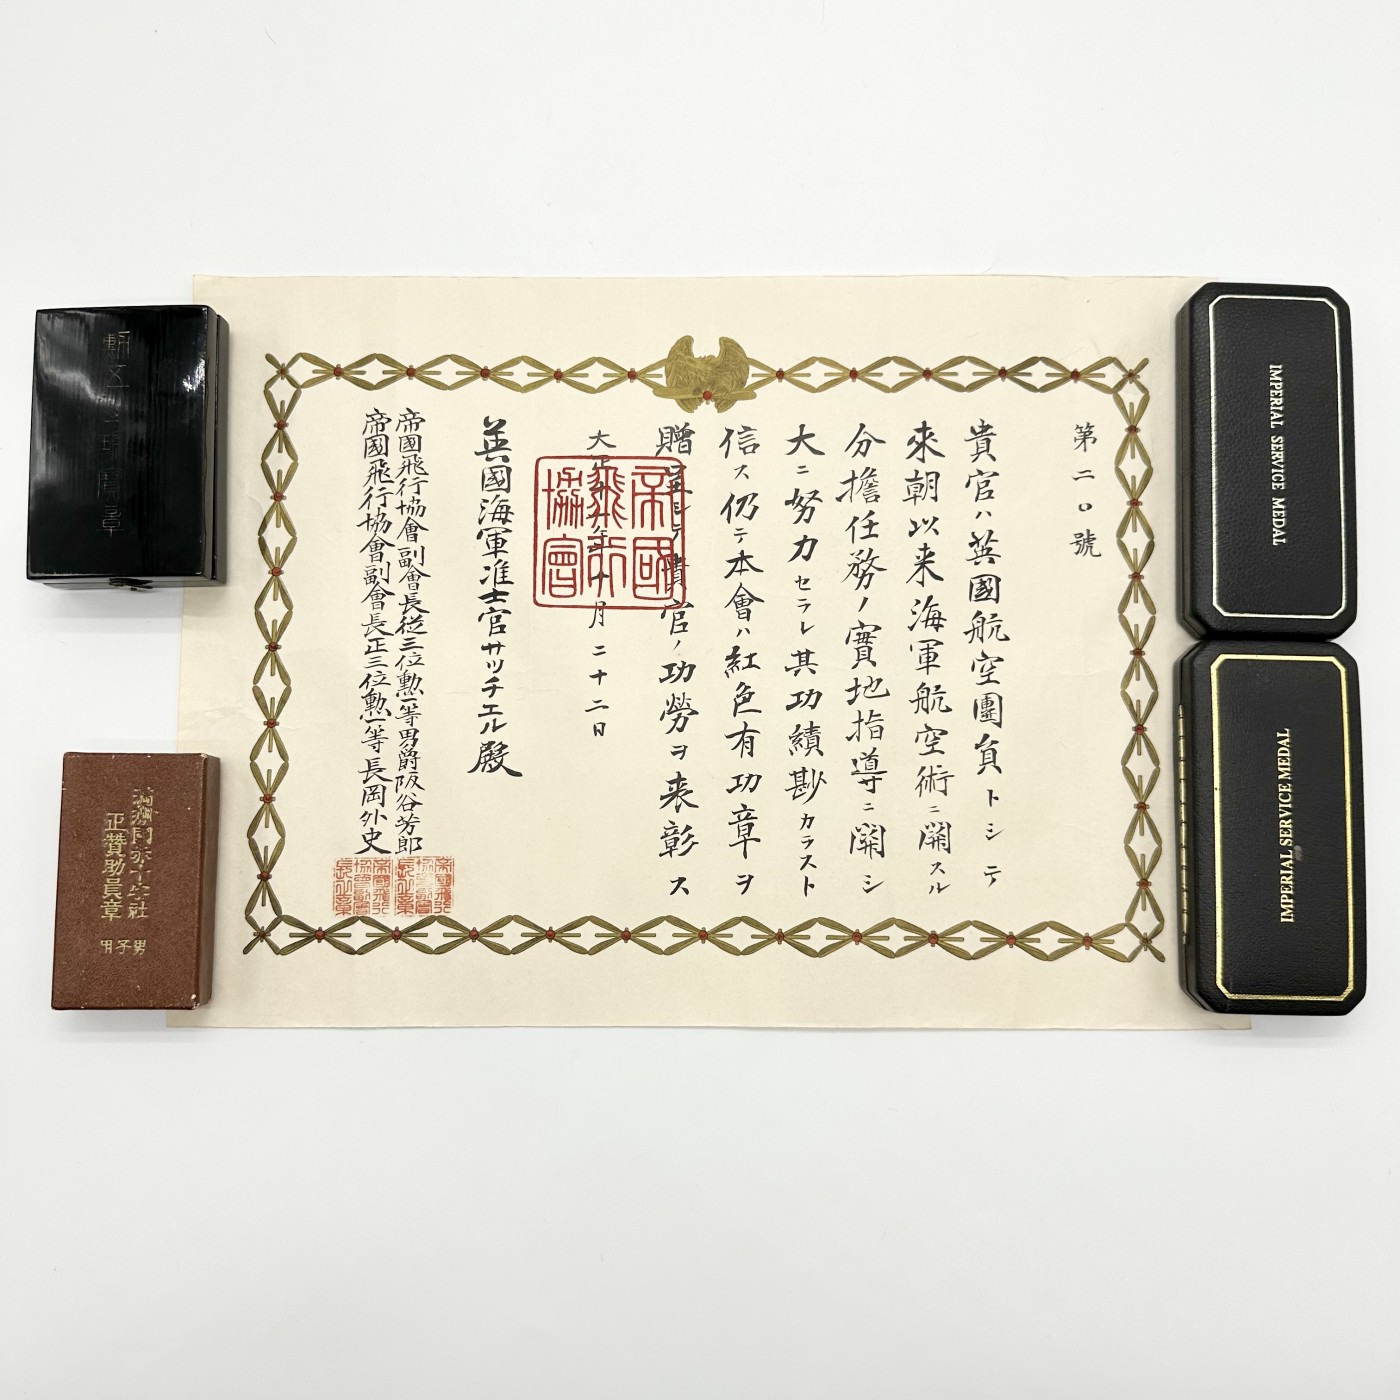 第二〇號
貴官ハ英國航空團員トシテ
來朝以来海軍航空術ニ關スル
分擔任務ノ實地指導ニ關シ
大ニ努力セラレ其功績尠カラスト
信ス仍テ本會ハ紅色有功章ヲ
贈呈シテ貴官ノ功勞ヲ表彰ス
大正十年十月二十二日
英國海軍准士官サッチエル殿
帝國飛行協會副會長従三位勲一等男爵阪谷芳郎
帝國飛行協會副會長正三位勲一等長岡外史
帝國
飛行
協會
帝國飛行
協會副會
長之章
帝國飛行
協會副會
長之章
勲五等
章
満洲國赤十字社
正贊助員章
男子用
IMPERIAL SERVICE MEDAL
IMPERIAL SERVICE MEDAL